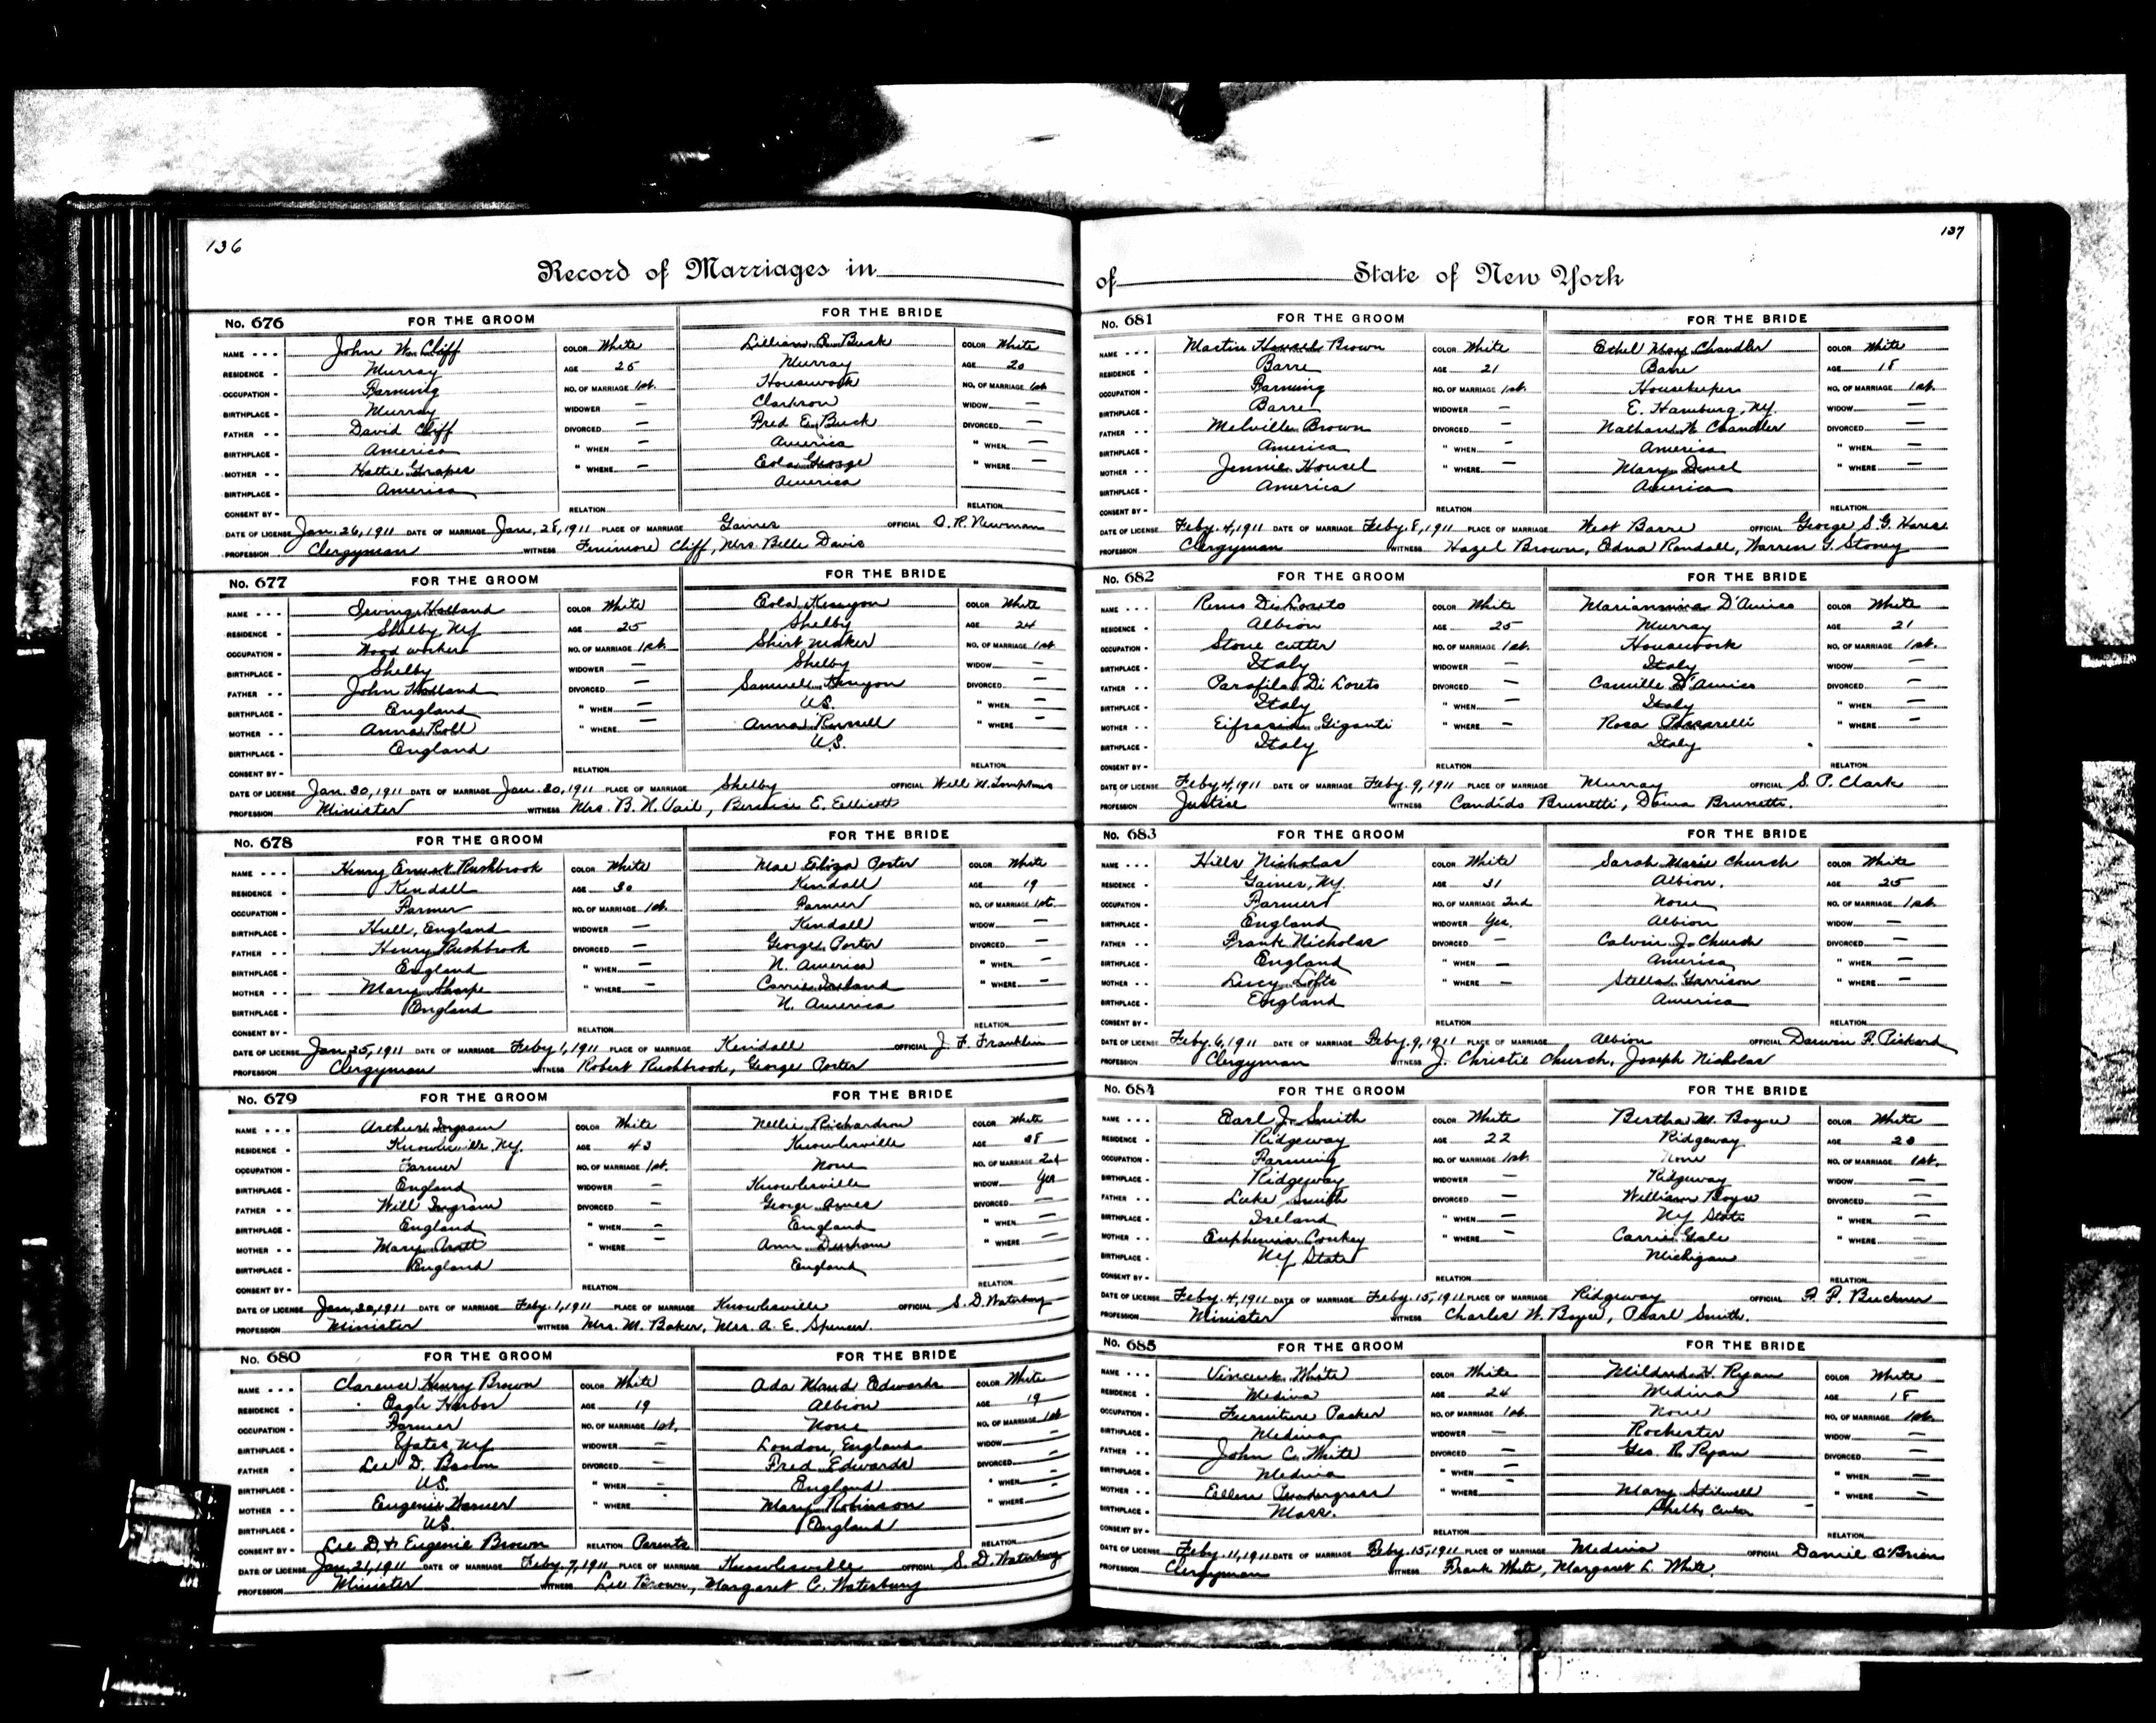 136
Record of Marriages in
No. 676 FOR THE GROOM FOR THE BRIDE
NAME John W. Cliff COLOR White Lillian E. Buck COLOR White
RESIDENCE Murray AGE 25 Murray AGE 20
OCCUPATION Farming NO. OF MARRIAGE 1st. Housework NO. OF MARRIAGE 1st
BIRTHPLACE Murray WIDOWER — Clarkson WIDOW —
FATHER David Cliff DIVORCED — Fred E. Buck DIVORCED —
BIRTHPLACE America " WHEN — America " WHEN —
MOTHER Hattie Grapes " WHERE — Eola George " WHERE —
BIRTHPLACE America America
CONSENT BY RELATION RELATION
DATE OF LICENSE Jan. 26, 1911 DATE OF MARRIAGE Jan. 28, 1911 PLACE OF MARRIAGE Gaines OFFICIAL O. R. Newman
PROFESSION Clergyman WITNESS Fenimore Cliff, Mrs. Belle Davis
No. 677 FOR THE GROOM FOR THE BRIDE
NAME Irving Holland COLOR White Eola Kenyon COLOR White
RESIDENCE Shelby, NY AGE 25 Shelby AGE 24
OCCUPATION Wood worker NO. OF MARRIAGE 1st. Shirt Maker NO. OF MARRIAGE 1st
BIRTHPLACE Shelby WIDOWER — Shelby WIDOW —
FATHER John Holland DIVORCED — Samuell Kenyon DIVORCED —
BIRTHPLACE England " WHEN — U.S. " WHEN —
MOTHER Anna Roll " WHERE — Anna Russell " WHERE —
BIRTHPLACE England U.S.
CONSENT BY RELATION RELATION
DATE OF LICENSE Jan. 30, 1911 DATE OF MARRIAGE Jan. 30, 1911 PLACE OF MARRIAGE Shelby OFFICIAL Will M. Tompkins
PROFESSION Minister WITNESS Mrs. B. N. Vail, E. Ellicott
No. 678 FOR THE GROOM FOR THE BRIDE
NAME Henry Ernest Rushbrook COLOR White Mae Eliza Porter COLOR White
RESIDENCE Kendall AGE 30 Kendall AGE 19
OCCUPATION Farmer NO. OF MARRIAGE 1st. Farmer NO. OF MARRIAGE 1st.
BIRTHPLACE Hull, England WIDOWER — Kendall WIDOW —
FATHER Henry Rushbrook DIVORCED — George Porter DIVORCED —
BIRTHPLACE England " WHEN — N. America " WHEN —
MOTHER Mary Sharpe " WHERE — Carrie Ireland " WHERE —
BIRTHPLACE England N. America
CONSENT BY RELATION RELATION
DATE OF LICENSE Jan. 25, 1911 DATE OF MARRIAGE Feby. 1, 1911 PLACE OF MARRIAGE Kendall OFFICIAL J. F. Franklin
PROFESSION Clergyman WITNESS Robert Rushbrook, George Porter
No. 679 FOR THE GROOM FOR THE BRIDE
NAME Arthur Ingram COLOR White Nellie Richardson COLOR White
RESIDENCE Knowlesville, Ny. AGE 43 Knowlesville AGE
OCCUPATION Farmer NO. OF MARRIAGE 1st. None NO. OF MARRIAGE 2nd
BIRTHPLACE England WIDOWER — Knowlesville WIDOW Yes
FATHER Will Ingram DIVORCED — George Ames DIVORCED —
BIRTHPLACE England " WHEN — England " WHEN —
MOTHER Mary Pratt " WHERE — Ann Durham " WHERE —
BIRTHPLACE England England
CONSENT BY RELATION RELATION
DATE OF LICENSE Jan. 30, 1911 DATE OF MARRIAGE Feby. 1, 1911 PLACE OF MARRIAGE Knowlesville OFFICIAL S. D. Waterbury
PROFESSION Minister WITNESS Mrs. M. Baker, Mrs. A. E. Spencer.
No. 680 FOR THE GROOM FOR THE BRIDE
NAME Clarence Henry Brown COLOR White Ada Maud Edwards COLOR White
RESIDENCE Eagle Harbor AGE 19 Albion AGE 19
OCCUPATION Farmer NO. OF MARRIAGE 1st. None NO. OF MARRIAGE 1st
BIRTHPLACE Yates, Ny WIDOWER — London, England WIDOW —
FATHER Lee D. Brown DIVORCED — Fred Edwards DIVORCED —
BIRTHPLACE U.S. " WHEN — England " WHEN —
MOTHER Eugenie " WHERE Mary Robinson " WHERE —
BIRTHPLACE U.S. England
CONSENT BY Lee D. & Eugenie Brown RELATION Parents RELATION
DATE OF LICENSE Jan. 21, 1911 DATE OF MARRIAGE Feby. 7, 1911 PLACE OF MARRIAGE Knowlesville OFFICIAL S. D. Waterbury
PROFESSION Minister WITNESS Lee Brown, Margaret C. Waterbury
137
of State of New York
No. 681 FOR THE GROOM FOR THE BRIDE
NAME Martin Housel Brown COLOR White Ethel May Chandler COLOR White
RESIDENCE Barre AGE 21 Barre AGE 18
OCCUPATION Farming NO. OF MARRIAGE 1st. Housekeeper NO. OF MARRIAGE 1st.
BIRTHPLACE Barre WIDOWER — E. Hamburg, Ny. WIDOW —
FATHER Melville Brown DIVORCED — Nathan N. Chandler DIVORCED —
BIRTHPLACE America " WHEN — America " WHEN —
MOTHER Jennie Housel " WHERE — Mary " WHERE —
BIRTHPLACE America America
RELATION
DATE OF LICENSE Feby. 4, 1911 DATE OF MARRIAGE Feby. 8, 1911 PLACE OF MARRIAGE West Barre OFFICIAL George S. G.
PROFESSION Clergyman WITNESS Hazel Brown, Edna Randall, Warren G. Stoney
No. 682 FOR THE GROOM FOR THE BRIDE
NAME Remo Di Loreto COLOR White D'Amico COLOR White
RESIDENCE Albion AGE 25 Murray AGE 21
OCCUPATION Stone cutter NO. OF MARRIAGE 1st. Housework NO. OF MARRIAGE 1st.
BIRTHPLACE Italy WIDOWER — Italy WIDOW —
FATHER Parafilo Di Loreto DIVORCED — Camille D'Amico DIVORCED —
BIRTHPLACE Italy " WHEN — Italy " WHEN —
MOTHER Giganti " WHERE — Rosa " WHERE —
BIRTHPLACE Italy Italy
CONSENT BY RELATION RELATION
DATE OF LICENSE Feby. 4, 1911 DATE OF MARRIAGE Feby. 9, 1911 PLACE OF MARRIAGE Murray OFFICIAL S. P. Clark
PROFESSION Justise WITNESS Candido Brunetti, Brunetti.
No. 683 FOR THE GROOM FOR THE BRIDE
NAME Hills Nicholas COLOR White Sarah Marie Church COLOR White
RESIDENCE Gaines, Ny. AGE 31 Albion. AGE 25
OCCUPATION Farmer NO. OF MARRIAGE 2nd None NO. OF MARRIAGE 1st.
BIRTHPLACE England WIDOWER Yes. Albion WIDOW —
FATHER Frank Nicholas DIVORCED — Calvin J. Church DIVORCED —
BIRTHPLACE England " WHEN — America " WHEN —
MOTHER Lucy Lofts " WHERE — Stella Garrison " WHERE —
BIRTHPLACE England America
CONSENT BY RELATION RELATION
DATE OF LICENSE Feby. 6, 1911 DATE OF MARRIAGE Feby. 9, 1911 PLACE OF MARRIAGE Albion OFFICIAL Darwin F. Pickard
PROFESSION Clergyman WITNESS J. Christie Church, Joseph Nicholas
No. 684 FOR THE GROOM FOR THE BRIDE
NAME Earl J. Smith COLOR White Bertha M. Boyce COLOR White
RESIDENCE Ridgeway AGE 22 Ridgeway AGE 20
OCCUPATION Farming NO. OF MARRIAGE 1st. None NO. OF MARRIAGE 1st.
BIRTHPLACE Ridgeway WIDOWER — Ridgeway WIDOW —
FATHER Luke Smith DIVORCED — William Boyce DIVORCED —
BIRTHPLACE Ireland " WHEN — Ny State " WHEN —
MOTHER Euphemia Conkey " WHERE — Carrie Gale " WHERE —
BIRTHPLACE Ny State Michigan
CONSENT BY RELATION RELATION
DATE OF LICENSE Feby. 4, 1911 DATE OF MARRIAGE Feby. 15, 1911 PLACE OF MARRIAGE Ridgeway OFFICIAL F. P. Buckner
PROFESSION Minister WITNESS Charles W. Boyce, Pearl Smith.
No. 685 FOR THE GROOM FOR THE BRIDE
NAME Vincent White COLOR White Mildred H. Ryan COLOR White
RESIDENCE Medina AGE 24 Medina AGE 18
OCCUPATION Furniture Packer NO. OF MARRIAGE 1st. None NO. OF MARRIAGE 1st.
BIRTHPLACE Medina WIDOWER — Rochester WIDOW —
FATHER John C. White DIVORCED — Geo. R. Ryan DIVORCED —
BIRTHPLACE Medina " WHEN — " WHEN —
MOTHER Ellen Pendergrass " WHERE — Mary Stilwell " WHERE —
BIRTHPLACE Mass. Shelby Center
CONSENT BY RELATION RELATION
DATE OF LICENSE Feby. 11, 1911 DATE OF MARRIAGE Feby. 15, 1911 PLACE OF MARRIAGE Medina OFFICIAL Daniel O'Brien
PROFESSION Clergyman WITNESS Frank White, Margaret L. White.